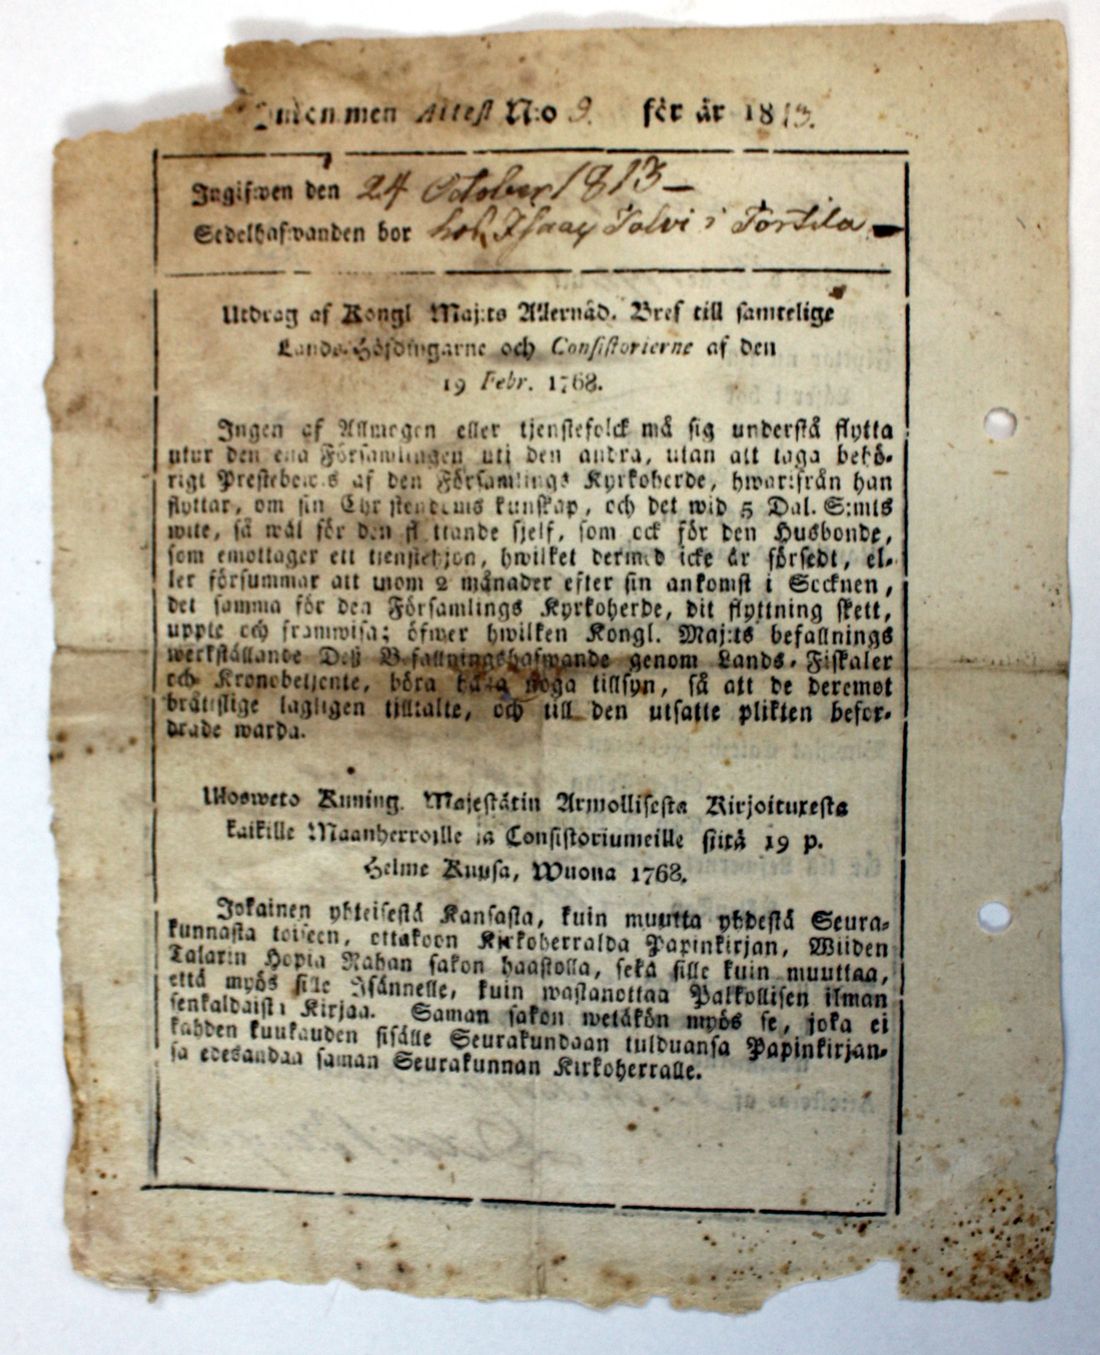 men Attest N:o 9. för år 1813.
Ingifwen den 24 October 1813 –
Sedelhafwanden bor hos Isaac Tolvi i Tortila –
Utdrag af Kongl Maj:ts Allernåd. Bref till samtelige
Lands-Höfdingarne och Consistorierne af den
19 Febr. 1768.
Ingen af Allmogen eller tjenstefolck må sig understå flytta
utur den ena Församlingen uti den andra, utan att taga behö-
rigt Prestebewis af den Församlings Kyrkoherde, hwarifrån han
flyttar, om sin Christendoms kunskap, och det wid 5 Dal. S:mts
wite, så wäl för den flyttande sjelf, som ock för den Husbonde,
som emottager ett tienstehjon, hwilket dermed icke är försedt, el-
ler försummar att inom 2 månader efter sin ankomst i Socknen,
det samma för den Församlings Kyrkoherde, dit flyttning skett,
uppte och framwisa; öfwer hwilken Kongl. Maj:ts befallnings
werkställande Deß Befallningshafwande genom Lands-Fiskaler
och Kronobetjente, böra hafwa noga tillsyn, så att de deremot
bråttslige lagligen tilltalte, och till den utsatte plikten befor-
drade warda.
Ulosweto Kuning. Majestätin Armollisesta Kirjoituxesta
kaikille Maanherroille ja Consistoriumeille siitä 19 p.
Helme Kuusa, Wuona 1768.
Jokainen yhteisestä Kansasta, kuin muutta yhdestä Seura-
kunnasta toiseen, ottakoon Kirkoherralda Papinkirjan, Wiiden
Talarin Hopia Rahan sakon haastolla, sekä sille kuin muuttaa,
että myös sille Isännelle, kuin wastanottaa Palkollisen ilman
senkaldaista Kirjaa. Saman sakon wetäkön myös se, joka ei
kahden kuukauden sisälle Seurakundaan tulduansa Papinkirjan-
sa edesandaa saman Seurakunnan Kirkoherralle.